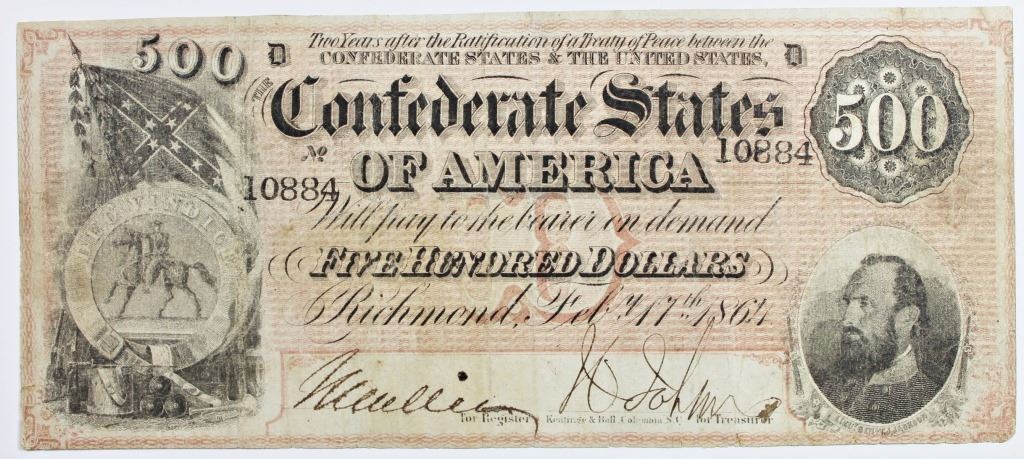 500
D
Two Years after the Ratification of a Treaty of Peace between the
CONFEDERATE STATES & THE UNITED STATES,
D
500
THE
Confederate States
No
10884
10884
OF AMERICA
Will pay to the bearer on demand
FIVE HUNDRED DOLLARS
Richmond, Feby 17th 1864
for Register
Keatinge & Ball, Columbia, S.C.
for Treasurer